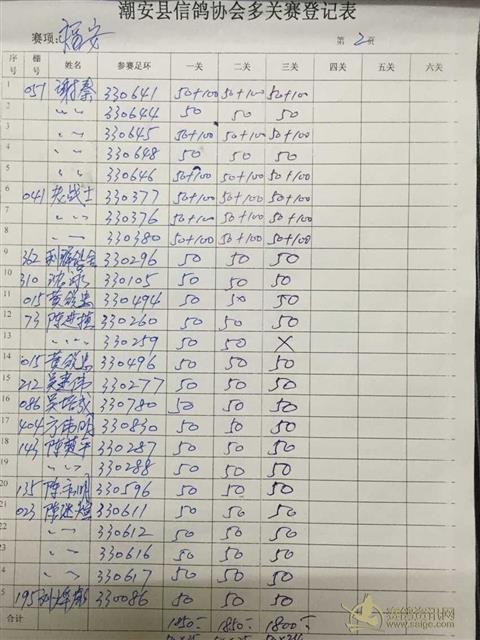 潮安县信鸽协会多关赛登记表
赛项: 福安 第 2 页
序号 棚号 姓名 参赛足环 一关 二关 三关 四关 五关 六关
1 051 谢秦 330641 50+100 50+100 50+100
2 〃 330644 50 50 50
3 〃 330645 50+100 50+100 50+100
4 〃 330648 50 50 50
5 〃 330646 50+100 50+100 50+100
6 041 战士 330377 50+100 50+100 50+100
7 〃 330376 50+100 50+100 50+100
8 〃 330380 50+100 50+100 50+100
9 362 330296 50 50 50
10 310 330105 50 50 50
11 015 黄 330494 50 50 50
12 73 陈 330260 50 50 50
13 〃 330259 50 50 ×
14 015 黄 330496 50 50 50
15 212 吴 伟 330277 50 50 50
16 086 吴 330780 50 50 50
17 404 方伟明 330830 50 50 50
18 143 陈 平 330287 50 50 50
19 〃 330288 50 50 50
20 135 陈 明 330596 50 50 50
21 023 陈 330611 50 50 50
22 〃 330612 50 50 50
23 〃 330616 50 50 50
24 〃 330617 50 50 50
5 195 330086 50 50 50
合计 1850 1850 1800
赛鸽资讯网
www.saige.com